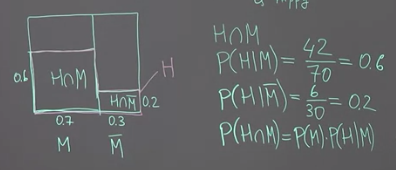 0.6
H∩M
H
H∩M̅
0.2
0.7
0.3
M
M̅
H∩M
P(H|M) = 42/70 = 0.6
P(H|M̅) = 6/30 = 0.2
P(H∩M) = P(M)·P(H|M)